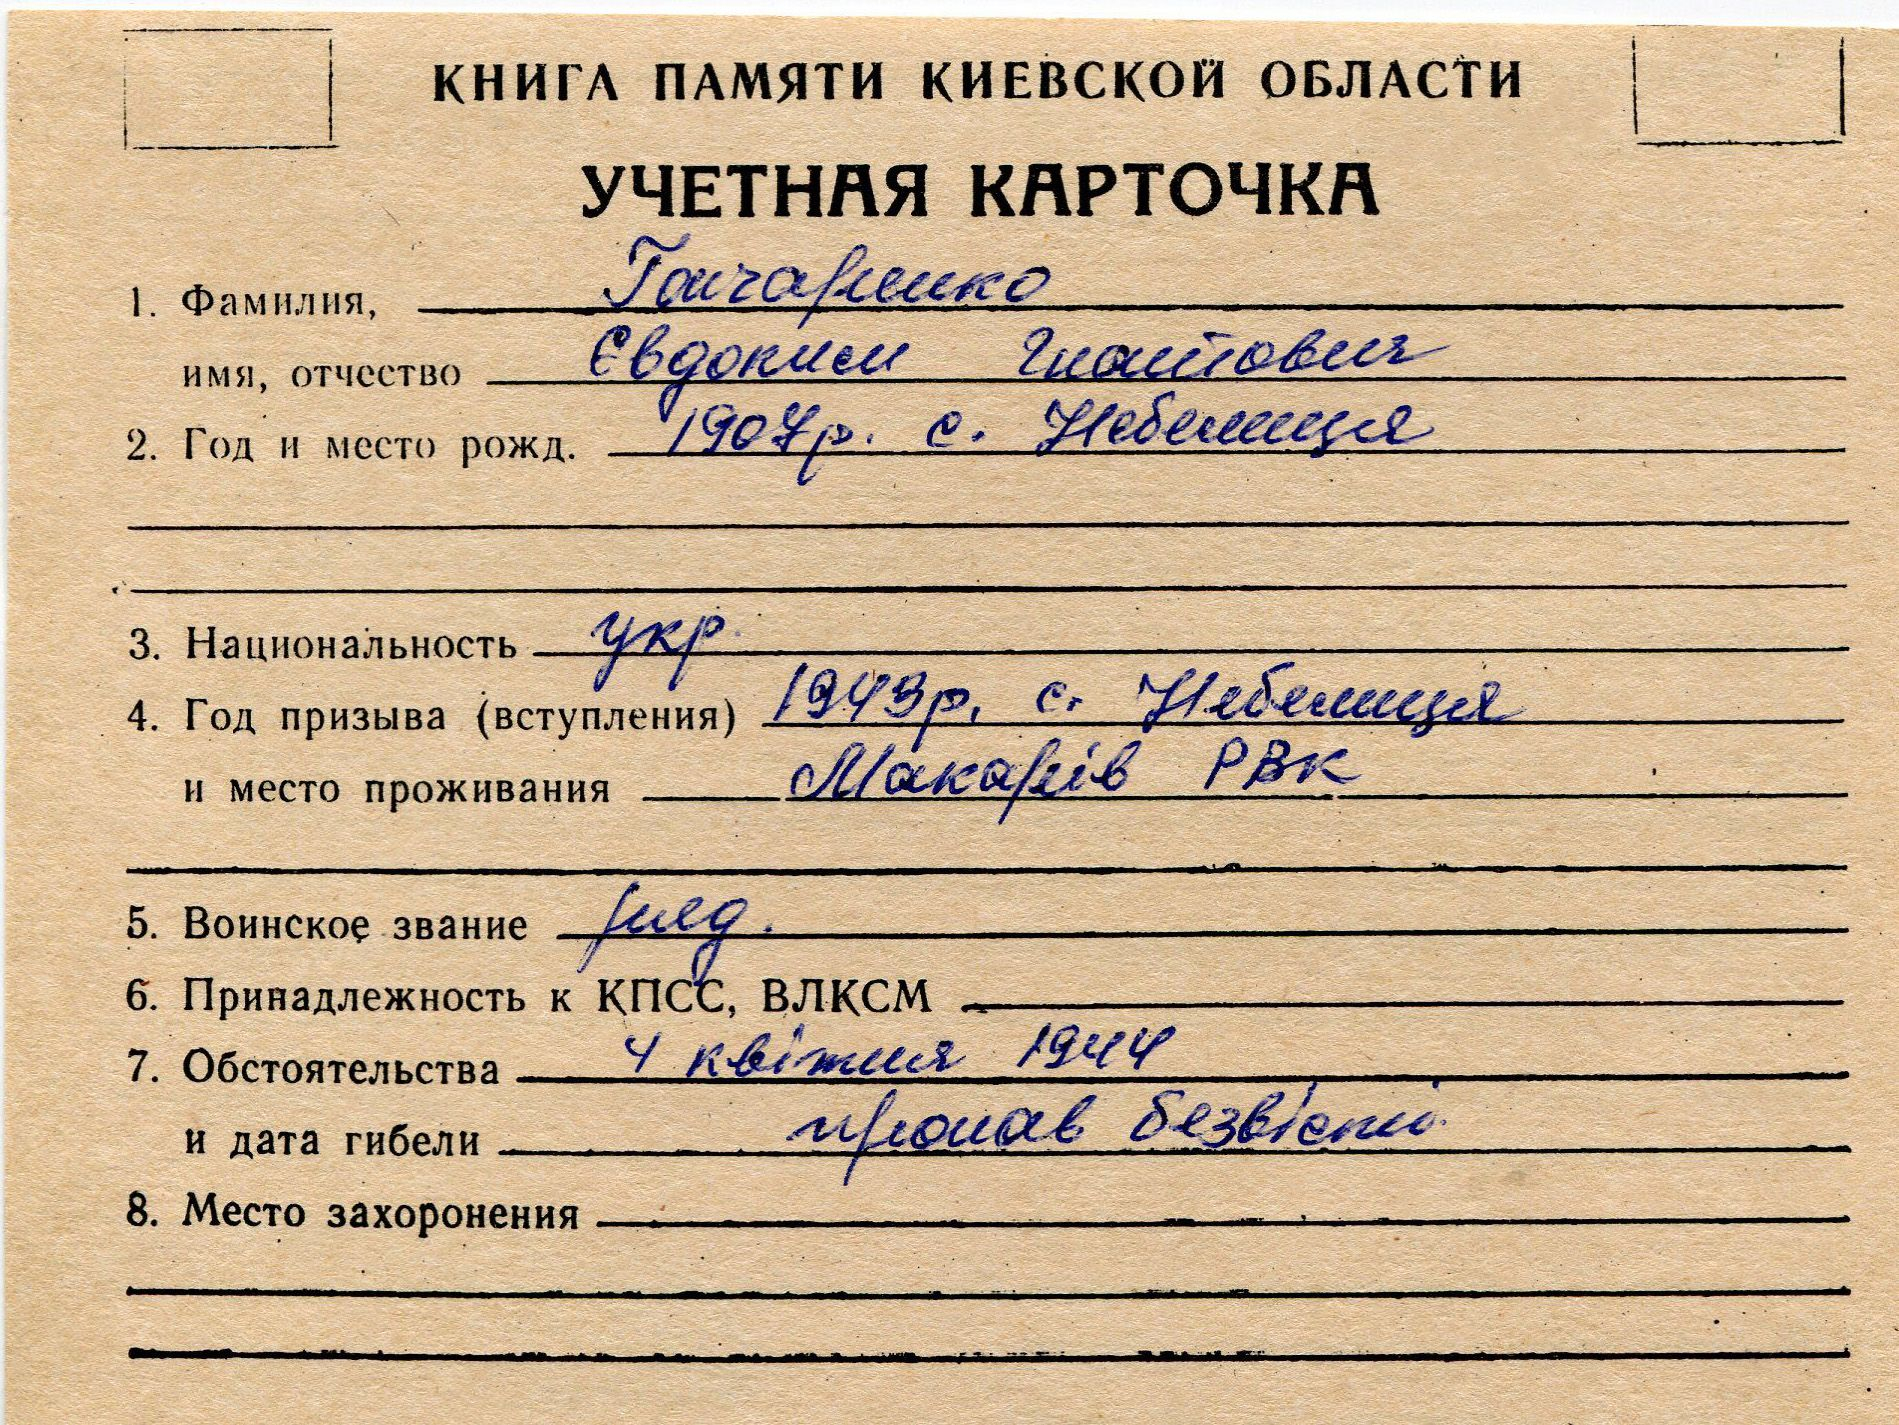 КНИГА ПАМЯТИ КИЕВСКОЙ ОБЛАСТИ
УЧЕТНАЯ КАРТОЧКА
1. Фамилия, Гончаренко
имя, отчество Євдоким Гнатович
2. Год и место рожд. 1907р. с. Небелиця
3. Национальность укр.
4. Год призыва (вступления) 1943р. с. Небелиця
и место проживания Макарів РВК
5. Воинское звание ряд.
6. Принадлежность к КПСС, ВЛКСМ
7. Обстоятельства 4 квітня 1944
и дата гибели пропав безвісті
8. Место захоронения